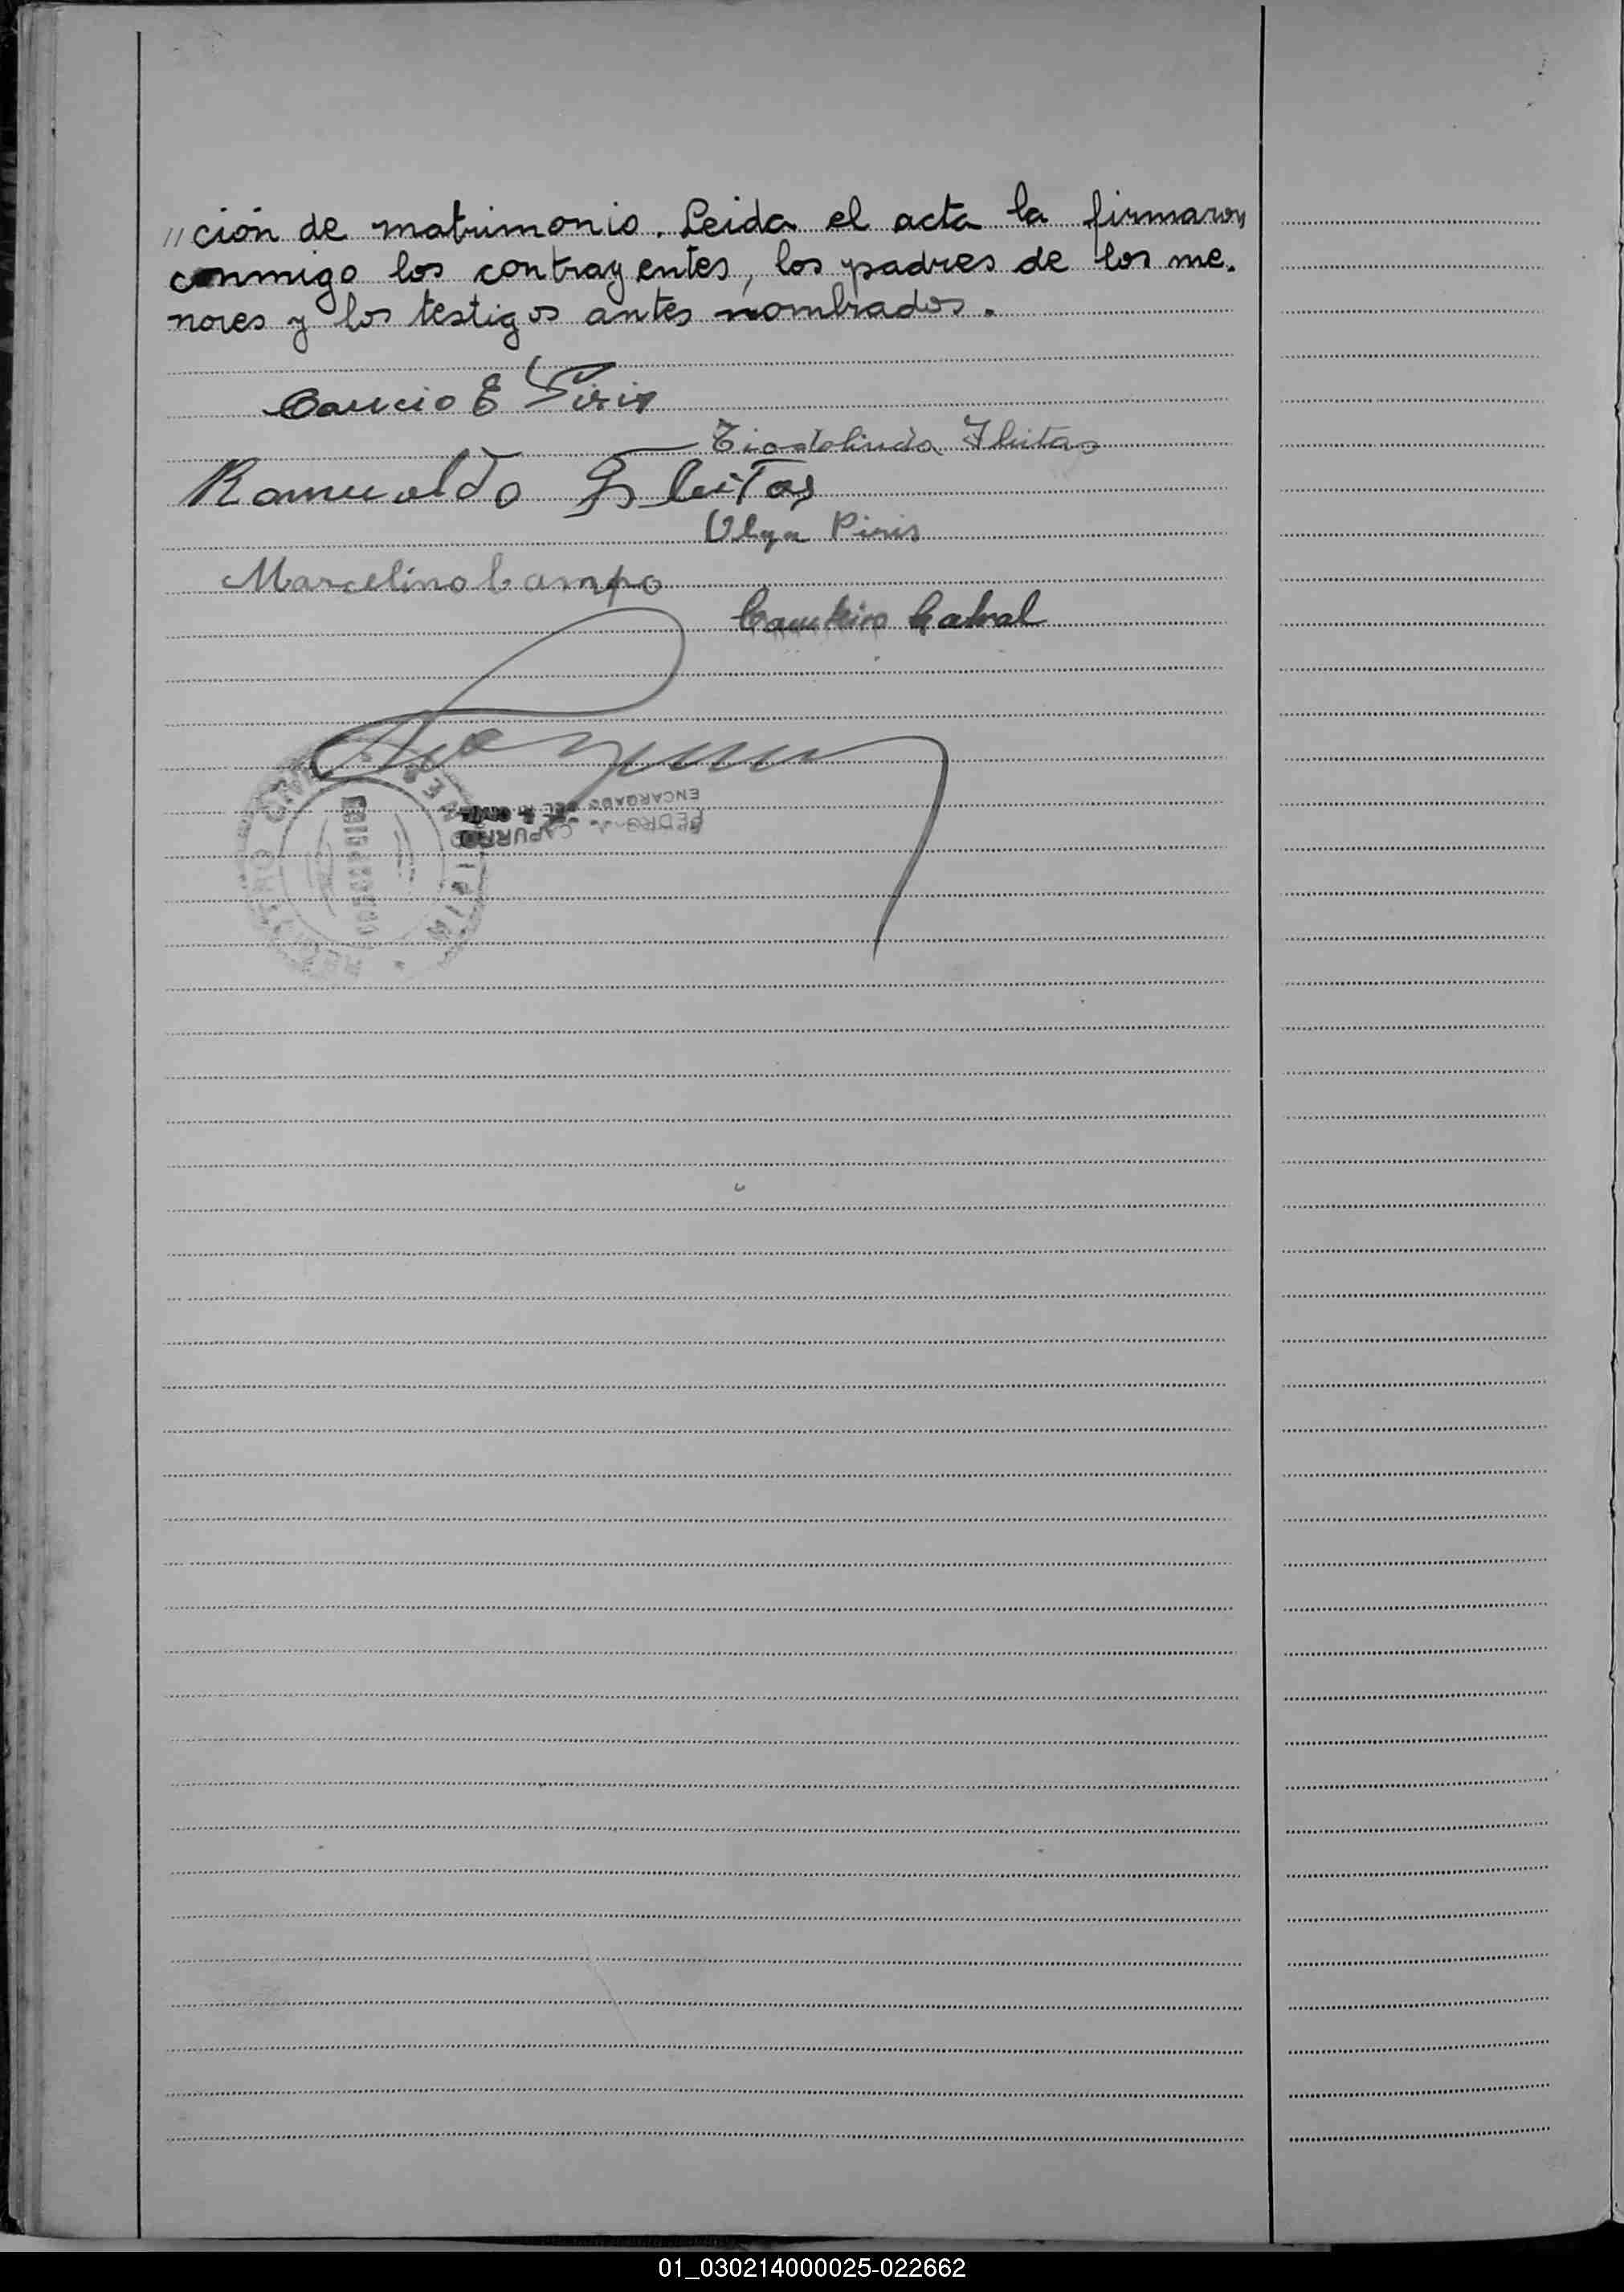 //ción de matrimonio. Leida el acta la firmaron
conmigo los contrayentes, los padres de los me.
nores y los testigos antes nombrados.
E Piris
Fleitas
Romualdo Fleitas
Olga Piris
Marcelino Campo
Cabral
ENCARGADO DEL R. CIVIL
PEDRO A. CAPURRO
01_030214000025-022662